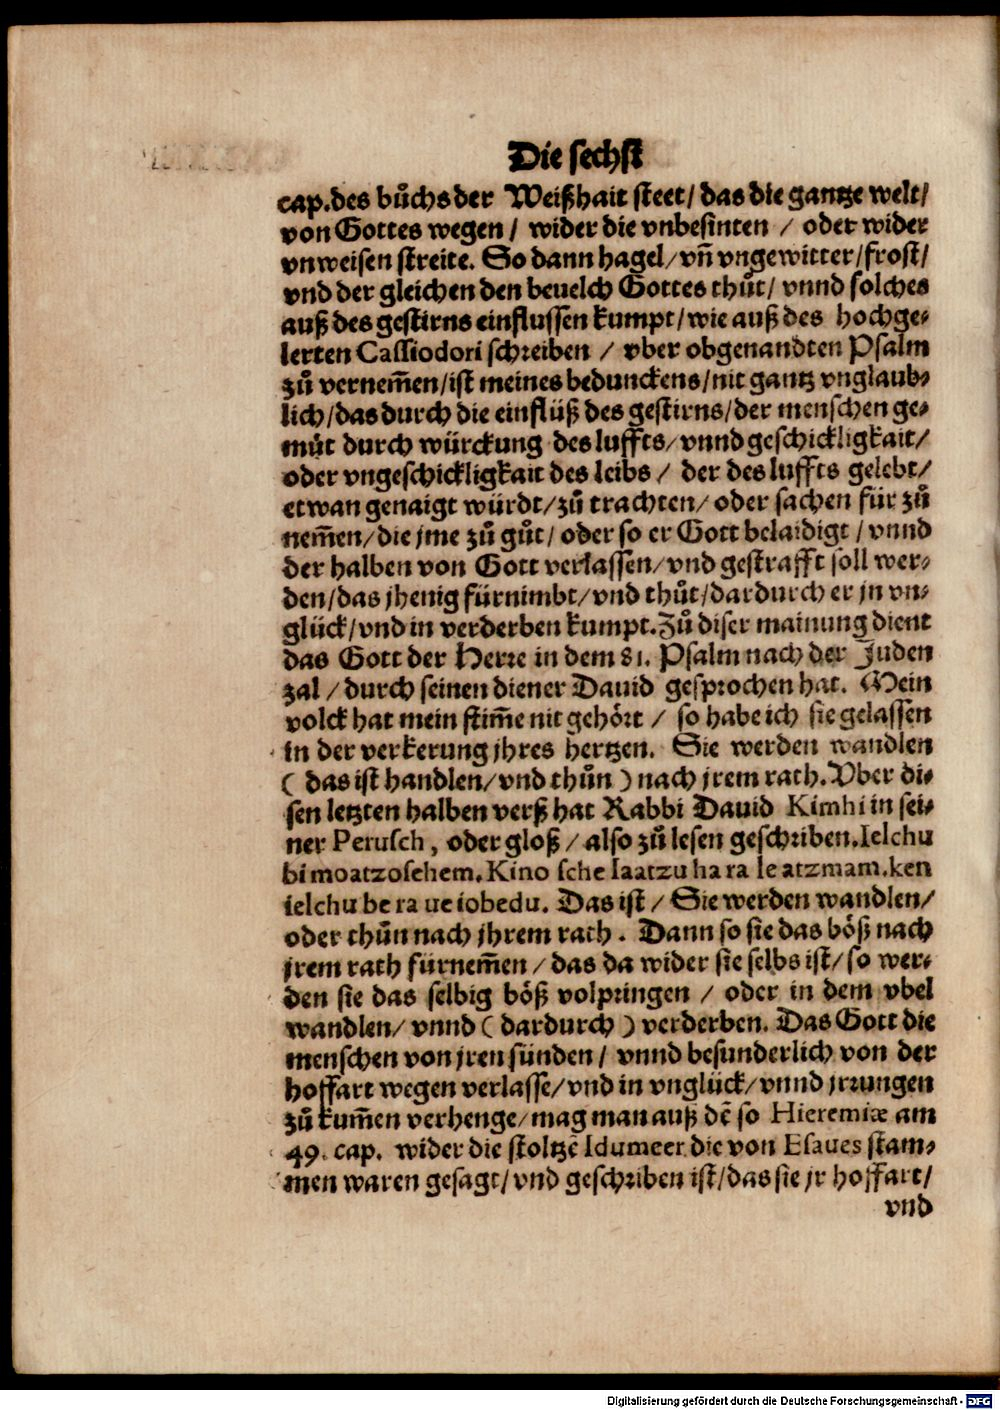 Die sechst
cap. des bůchs der Weißhait steet / das die gantze welt /
von Gottes wegen / wider die vnbesinten / oder wider
vnweisen streite. So dann hagel / vñ vngewitter / frost /
vnd der gleichen den beuelch Gottes thůt / vnnd solches
auß des gestirns einflussen kumpt / wie auß des hochge-
lerten Cassiodori schreiben / vber obgenandten Psalm
zů vernem̃en / ist meines bedunckens / nit gantz vnglaub-
lich / das durch die einflüß des gestirns / der menschen ge-
müt durch würckung des luffts / vnnd geschickligkait /
oder vngeschickligkait des leibs / der des luffts gelebt /
etwan genaigt würdt / zů trachten / oder sachen für zů
nem̃en / die jme zů gůt / oder so er Gott belaidigt / vnnd
der halben von Gott verlassen / vnd gestrafft soll wer-
den / das jhenig fürnimbt / vnd thůt / dardurch er jn vn-
glück / vnd in verderben kumpt. Zů diser mainung dient
das Gott der Herre in dem 81. Psalm nach der Juden
zal / durch seinen diener Dauid gesprochen hat. Mein
volck hat mein stim̃e nit gehört / so habe ich sie gelassen
in der verkerung jhres hertzen. Sie werden wandlen
( das ist handlen / vnd thůn ) nach jrem rath. Vber di-
sen letzten halben verß hat Rabbi Dauid Kimhi in sei-
ner Perusch, oder gloß / also zů lesen geschriben. Ielchu
bi moatzoschem. Kino sche Iaatzu ha ra le atzmam. ken
ielchu be ra ue iobedu. Das ist / Sie werden wandlen /
oder thůn nach jhrem rath. Dann so sie das böß nach
jrem rath fürnem̃en / das da wider sie selbs ist / so wer-
den sie das selbig böß volpringen / oder in dem vbel
wandlen / vnnd ( dardurch ) verderben. Das Gott die
menschen von jren sünden / vnnd besunderlich von der
hoffart wegen verlasse / vnd in vnglück / vnnd jrrungen
zů kum̃en verhenge / mag man auß dẽ so Hieremiæ am
49. cap. wider die stoltzẽ Idumeer die von Esaues stam-
men waren gesagt / vnd geschriben ist / das sie jr hoffart /
vnd
Digitalisierung gefördert durch die Deutsche Forschungsgemeinschaft - DFG